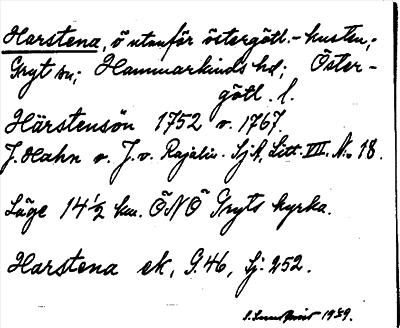 Harstena, ö utanför östergötl.-kusten;
Gryt sn; Hammarkinds hd; Öster-
götl. l.
Härstensön 1752 v. 1767.
J. Hahn v. J. v. Rajalin. SjK, Litt. VII. No 18.
Läge 14 1/2 km. ÖNÖ Gryts kyrka.
Harstena ek, G. 46, Sj. 252.
1939.